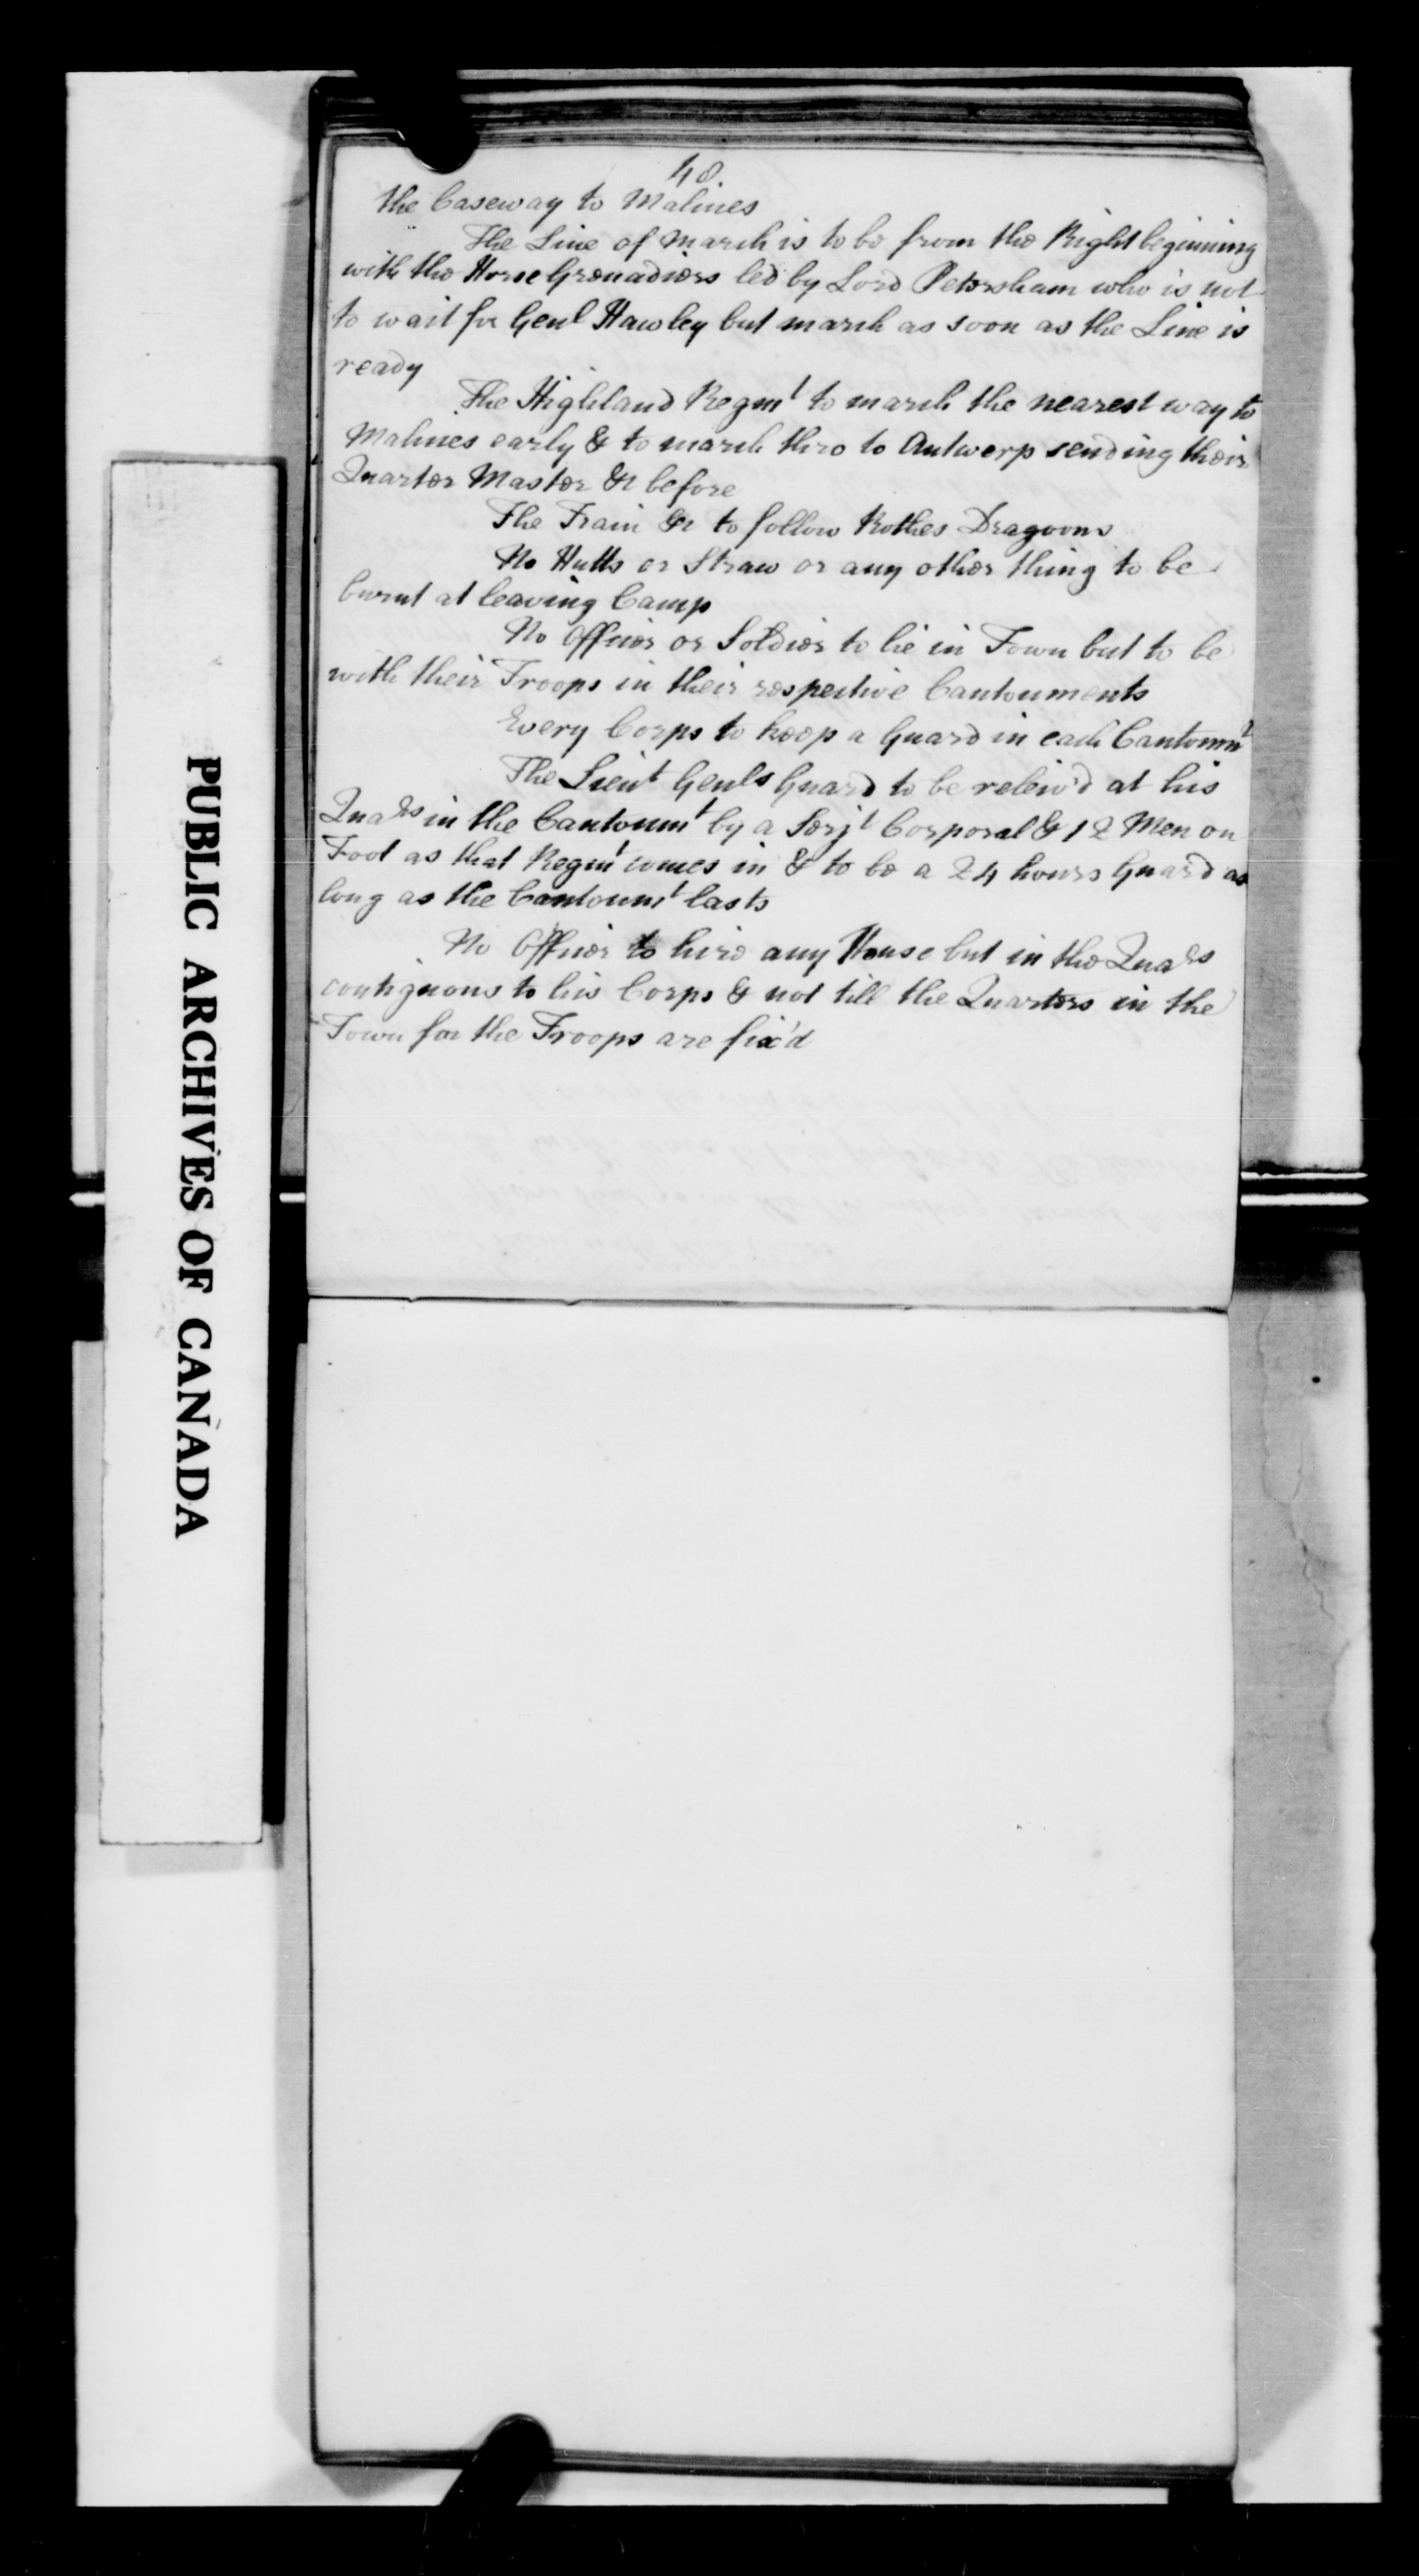 48.
the Caseway to Malines
The Line of March is to be from the Right beginning
with the Horse Grenadiers led by Lord Petersham who is not
to wait for Genl Hawley but march as soon as the Line is
ready
The Highland Regmt to march the nearest way to
Malines early & to march thro to Antwerp sending their
Quarter Master &c before
The Train &c to follow Rothes Dragoons
No Hutts or Straw or any other thing to be
burnt at leaving Camp
No Officer or Soldier to lie in Town but to be
with their Troops in their respective Cantonments
Every Corps to keep a Guard in each Cantonmt
The Lieut Genls Guard to be reliev'd at his
Quars in the Cantonmt by a Serjt Corporal & 12 Men on
Foot as that Regmt comes in & to be a 24 hours Guard as
long as the Cantonmt lasts
No Officer to hire any House but in the Quars
contiguous to his Corps & not till the Quarters in the
Town for the Troops are fix'd
PUBLIC ARCHIVES OF CANADA